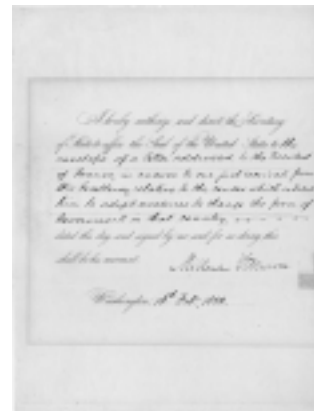 I hereby authorize and direct the Secretary
of State to affix the Seal of the United States to the
envelope of a letter addressed to the President
of France, in answer to one just received from
His Excellency relating to the causes which induced
him to adopt measures to change the form of
Government in that country,
dated this day and signed by me and for so doing this
shall be his warrant.
Millard Fillmore
Washington, Feb.